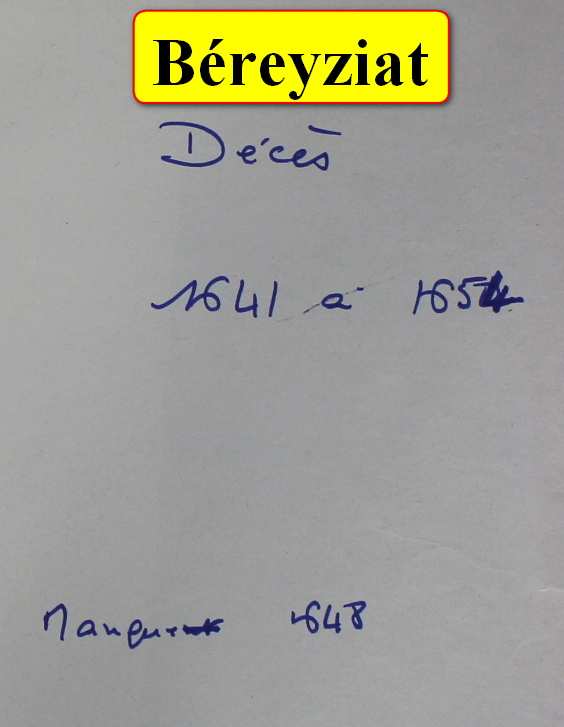 Béreyziat
Décès
1641 à 1654
Manque 1648